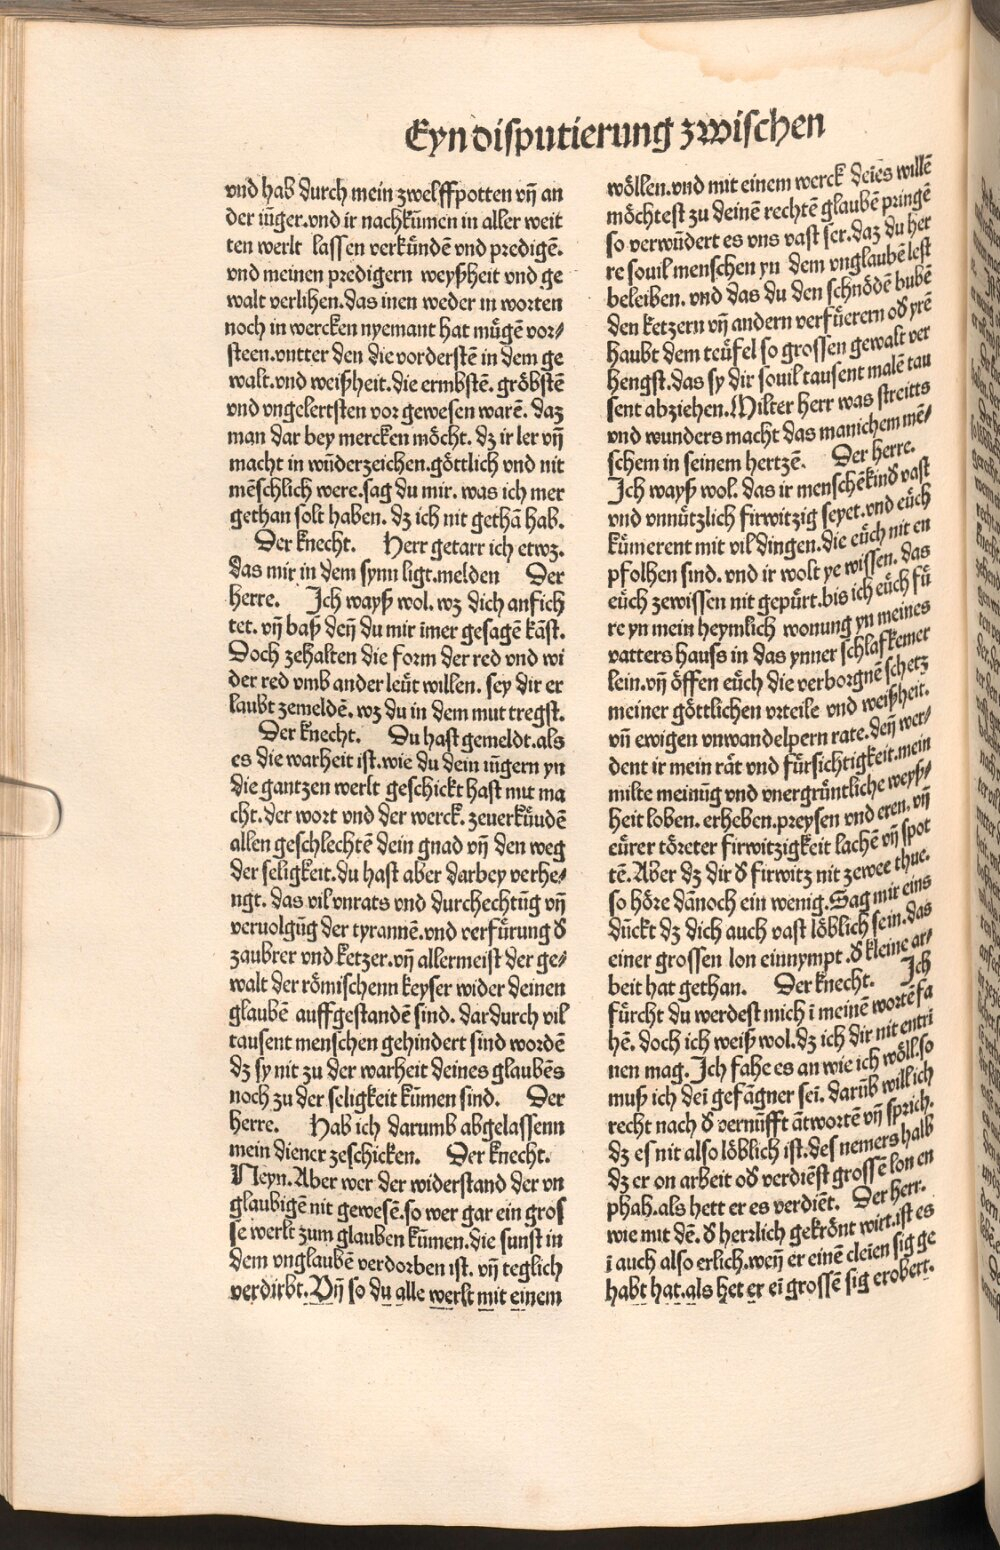 Eyn disputierung zwischen
vnd hab durch mein zwelffpotten vñ an
der iũger.vnd ir nachkũmen in aller weit
ten werlt lassen verkündẽ vnd predigẽ.
vnd meinen predigern weyßheit vnd ge
walt verlihen.das inen weder in worten
noch in wercken nyemant hat mügẽ vor⸗
steen.vntter den die vorderstẽ in dem ge
walt.vnd weißheit.die ermbstẽ.gröbstẽ
vnd vngelertsten vor gewesen warẽ. daz
man dar bey mercken möcht. dz ir ler vñ
macht in wũderzeichen.göttlich vnd nit
mẽschlich were.sag du mir. was ich mer
gethan solt haben. dz ich nit gethã hab.
Der knecht. Herr getarr ich etwz.
das mir in dem synn ligt.melden Der
herre. Ich wayß wol. wz dich anfich
tet. vñ baß deñ du mir ĩmer gesagẽ kãst.
Doch zehalten die form der red vnd wi
der red vmb ander leüt willen. sey dir er
laubt zemeldẽ. wz du in dem mut tregst.
Der knecht. Du hast gemeldt.als
es die warheit ist.wie du dein iũgern yn
die gantzen werlt geschickt hast mit ma
cht.der wort vnd der werck. zeuerküudẽ
allen geschlechtẽ dein gnad vñ den weg
der seligkeit.du hast aber darbey verhe⸗
ngt. das vil vnrats vnd durchechtũg vñ
veruolgũg der tyrannẽ.vnd verfürung d̕
zaubrer vnd ketzer.vñ allermeist der ge⸗
walt der römischenn keyser wider deinen
glaubẽ auffgestandẽ sind. dardurch vil
tausent menschen gehindert sind wordẽ
dz sy nit zu der warheit deines glaubẽs
noch zu der seligkeit kũmen sind. Der
herre. Hab ich darumb abgelassenn
mein diener zeschicken. Der knecht.
Neyn.Aber wer der widerstand der vn
glaubigẽ nit gewesẽ.so wer gar ein gros
se werlt zum glauben kũmen.die sunst in
dem vnglaubẽ verdorben ist. vñ teglich
verdirbt.Vñ so du alle werlt mit einem
wöllen.vnd mit einem werck deĩes willẽ
möchtest zu deinẽ rechtẽ glaubẽ pringẽ
so verwũdert es vns vast ser.daz du her
re souil menschen yn dem vnglaubẽ lest
beleiben. vnd das du den schnödẽ bubẽ
den ketzern vñ andern verfüerern od̕ yrẽ
haubt dem teüfel so grossen gewalt ver
hengst.das sy dir souil tausent malẽ tau
sent abziehen.Milter herr was streitts
vnd wunders macht das manichem mẽ⸗
schem in seinem hertzẽ. Der herre.
Ich wayß wol. das ir menschẽkind vast
vnd vnnützlich firwitzig seyet.vnd eüch
kümerent mit vil dingen.die eüch nit en
pfolhen sind. vnd ir wolt ye wissen. das
eüch zewissen nit gepürt.bis ich eüch fü
re yn mein heymlich wonung yn meines
vatters hauss in das ynner schlafkemer
lein.vñ öffen eüch die verborgnẽ schetz
meiner göttlichen vrteile vnd weißheit.
vñ ewigen vnwandelpern rate.deñ wer⸗
dent ir mein rät vnd fürsichtigkeit.mein
milte meinũg vnd vnergrüntliche weyß⸗
heit loben. erheben.preysen vnd eren. vñ
eürer töreter firwitzigkeit lachẽ vñ spot
tẽ.Aber dz dir d̕ firwitz nit zewee thue.
so höre dãnoch ein wenig.Sag mir eins
dückt dz dich auch vast löblich sein.das
einer grossen lon einnympt.d̕ kleine ar⸗
beit hat gethan. Der knecht. Ich
fürcht du werdest mich ĩ meinẽ wortẽ fa
hẽ. doch ich weiß wol.dz ich dir nit entri
nen mag. Ich fahe es an wie ich wöll.so
muß ich deĩ gefãgner seĩ. darũb will ich
recht nach d̕ vernũfft ãtwortẽ vñ sprich.
dz es nit also löblich ist.des nemers halb
dz er on arbeit od̕ verdiẽst grossẽ lon en
phah.als hett er es verdiẽt. Der herr.
wie mit dẽ. d̕ herrlich gekrönt wirt.ist es
ĩ auch also erlich.weñ er einẽ cleĩen sig ge
habt hat.als het er eĩ grossẽ sig erobert.